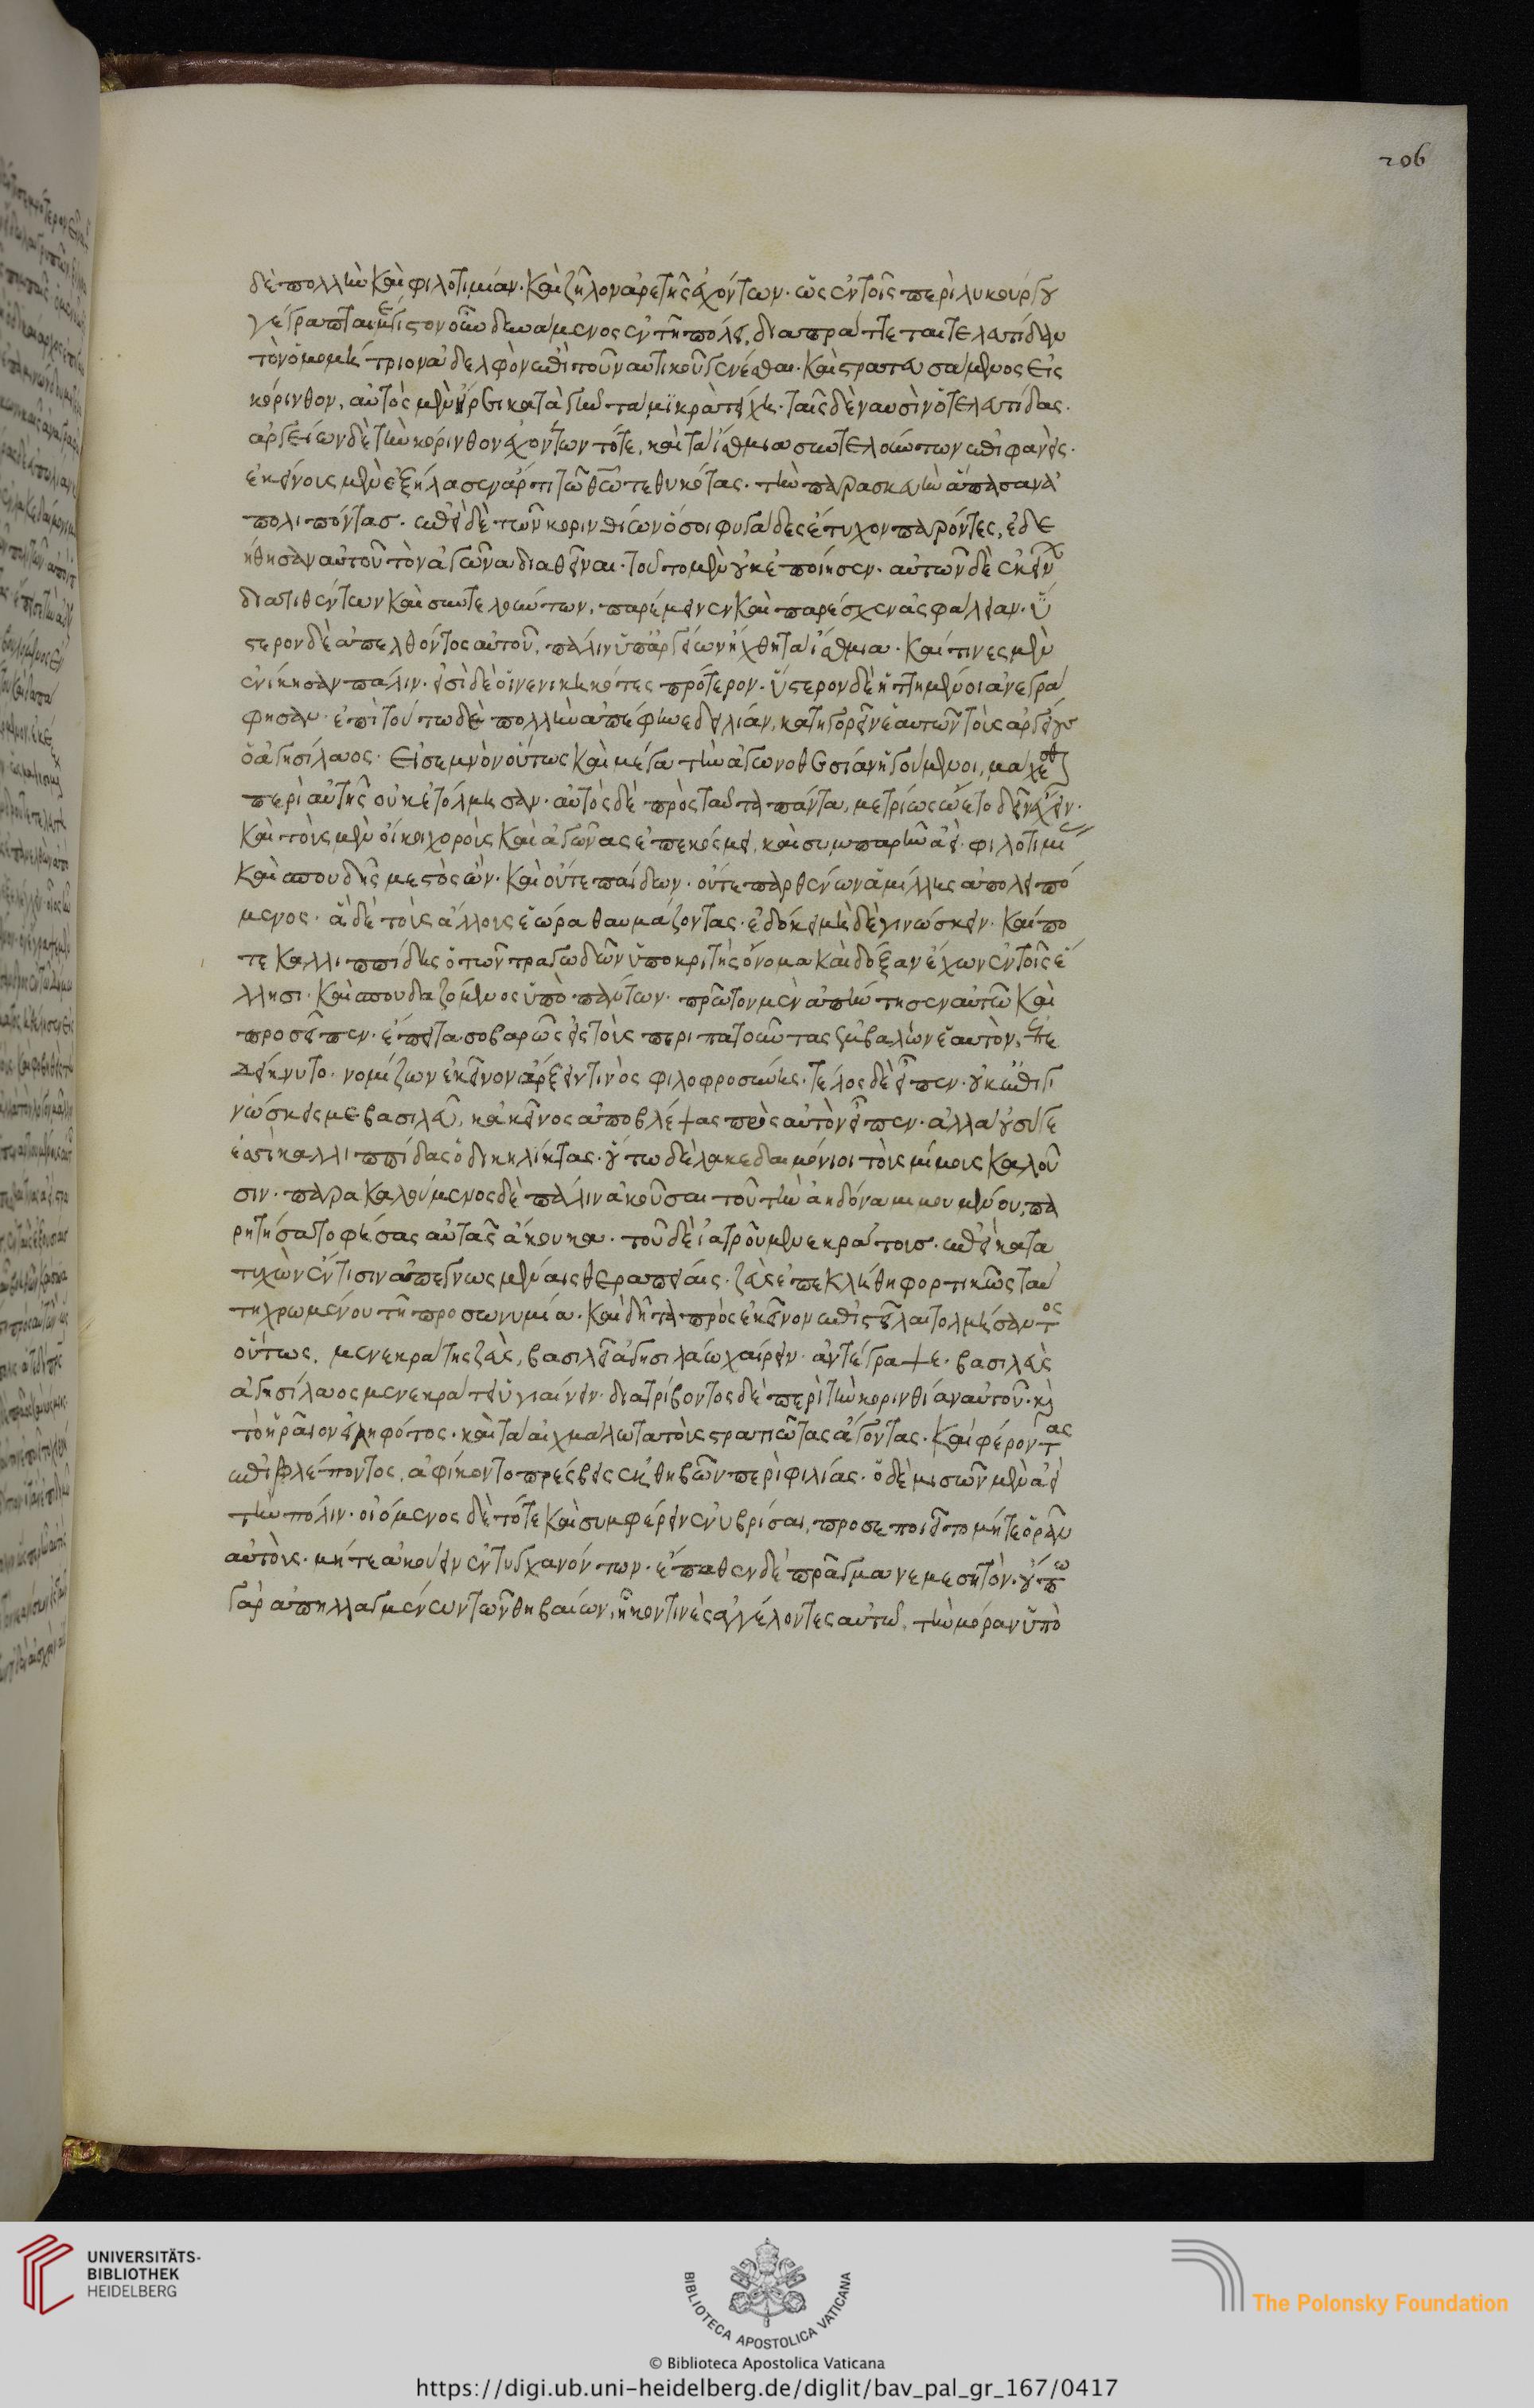 206
δὲ πολλὴν καὶ φιλοτιμίαν· καὶ ζῆλον ἀρετῆς ἐχόντων· ὡς ἐν τοῖς περὶ λυκούργου
γέγραπται· μέγιστον οὖν δυνάμενος ἐν τῆ πόλει, διαπράττεται τελευτίδαν
τὸν ὁμομήτριον ἀδελφὸν ἐπὶ τοῦ ναυτικοῦ γενέσθαι· καὶ στρατευσάμενος εἰς
κόρινθον, αὐτὸς μὲν ἥρει κατὰ γῆν τὰ μϊκρὰ τείχη· ταῖς δὲ ναυσὶν ὁ τελευτίδας·
ἀργείων δὲ τὴν κόρινθον ἐχόντων τότε, καὶ τὰ ἴσθμια συντελούντων ἐπιφανεὶς·
ἐκείνους μὲν ἐξήλασεν ἄρτι τῶ θεῶ τεθυκότας· τὴν παρασκευὴν ἅπασαν ἀ
πολιπόντασ· ἐπεὶ δὲ τῶν κορινθίων ὅσοι φυγάδες ἔτυχον παρόντες, ἐδε
ήθησαν αὐτοῦ τὸν ἀγῶνα διαθεῖναι· τοῦτο μὲν οὐκ ἐποίησεν· αὐτῶν δὲ ἐκείνων
διατιθέντων καὶ συντελούντων, παρέμεινεν καὶ παρέσχεν ἀσφάλειαν· ὕ
στερον δὲ ἀπελθόντος αὐτοῦ, πάλιν ὑπ' ἀργείων ἤχθη τὰ ἴσθμια· καί τινες μὲν
ἐνίκησαν πάλιν· εἰσὶ δὲ οἳ νενικηκότες πρότερον· ὕστερον δὲ ἡττημένοι ἀνεγρά
φησαν· ἐπὶ τούτω δὲ πολλὴν ἀπέφηνε δειλίαν, κατηγορεῖν ἑαυτῶν τοὺς ἀργείους
ὁ ἀγησίλαος· εἰ σεμνὸν οὕτως καὶ μέγα τὴν ἀγωνοθεσίαν ἡγούμενοι, μάχεσθαι
περὶ αὐτῆς οὐκ ἐτόλμησαν· αὐτὸς δὲ πρὸς ταῦτα πάντα, μετρίως ὤετο δεῖν ἔχειν·
καὶ τοὺς μὲν οἴκοι χοροὺς καὶ ἀγῶνας ἐπεκόσμει, καὶ συμπαρῆν ἀεὶ· φιλοτιμίας
καὶ σπουδῆς μεστὸς ὤν· καὶ οὔτε παίδων· οὔτε παρθένων ἁμίλλης ἀπολειπό
μενος· ἃ δὲ τοὺς ἄλλους ἑώρα θαυμάζοντας· ἐδόκει μὴ δὲ γινώσκειν· καί πο
τε καλλιππίδης ὁ τῶν τραγωδῶν ὑποκριτὴς ὄνομα καὶ δόξαν ἔχων ἐν τοῖς ἕ
λλησι· καὶ σπουδαζόμενος ὑπὸ πάντων· πρῶτον μὲν ἀπήντησεν αὐτῶ καὶ
προσεῖπεν· ἔπειτα σοβαρῶς εἰς τοὺς περιπατοῦντας ἐμβαλὼν ἑαυτὸν, ἐπε
δείκνυτο· νομίζων ἐκεῖνον ἄρξειν τινὸς φιλοφροσύνης· τέλος δὲ εἶπεν· οὐκ ἐπιγι
νώσκεις με βασιλεῦ, κἀκεῖνος ἀποβλέψας πρὸς αὐτὸν εἶπεν· ἀλλὰ οὐ σύ γε
ἐσὶ καλλιππίδας ὁ δικηλίκτας· οὕτω δὲ λακεδαιμόνιοι τοὺς μίμους καλοῦ
σιν· παρακαλούμενος δὲ πάλιν ἀκοῦσαι τοῦ τὴν ἀηδόνα μιμουμένου, πα
ρητήσατο φήσας αὐτᾶς ἄκουκα· τοῦ δὲ ἰατροῦ μενεκράτουσ· ἐπεὶ κατα
τυχὼν ἔν τισιν ἀπεγνωσμέναις θεραπείαις· ζεὺς ἐπεκλήθη φορτικῶς ταύ
τη χρωμένου τῆ προσωνυμία· καὶ δῆτα πρὸς ἐκεῖνον ἐπιστεῖλαι τολμήσαντος
οὕτως, μενεκράτης ζεὺς, βασιλεῖ ἀγησιλάω χαίρειν· ἀντέγραψε· βασιλεὺς
ἀγησίλαος μενεκράτει ὑγιαίνειν· διατρίβοντος δὲ περὶ τὴν κορινθίαν αὐτοῦ· καὶ
τὸ ἡραῖον εἰληφότος· καὶ τὰ αἰχμάλωτα τοὺς στρατιώτας ἄγοντας· καὶ φέροντας
ἐπιβλέποντος, ἀφίκοντο πρέσβεις ἐκ θηβῶν περὶ φιλίας· ὁ δὲ μισῶν μὲν ἀεὶ
τὴν πόλιν· οἰόμενος δὲ τότε καὶ συμφέρειν ἐνυβρίσαι, προσεποιεῖτο μήτε ὁρᾶν
αὐτοὺς· μήτε ἀκούειν ἐντυγχανόντων· ἔπαθεν δὲ πρᾶγμα νεμεσητὸν· οὔπω
γὰρ ἀπηλλαγμένων τῶν θηβαίων, ἧκον τινὲς ἀγγέλοντες αὐτῶ, τὴν μόραν ὑπὸ
UNIVERSITÄTS-
BIBLIOTHEK
HEIDELBERG
BIBLIOTECA APOSTOLICA VATICANA
The Polonsky Foundation
© Biblioteca Apostolica Vaticana
https://digi.ub.uni-heidelberg.de/diglit/bav_pal_gr_167/0417